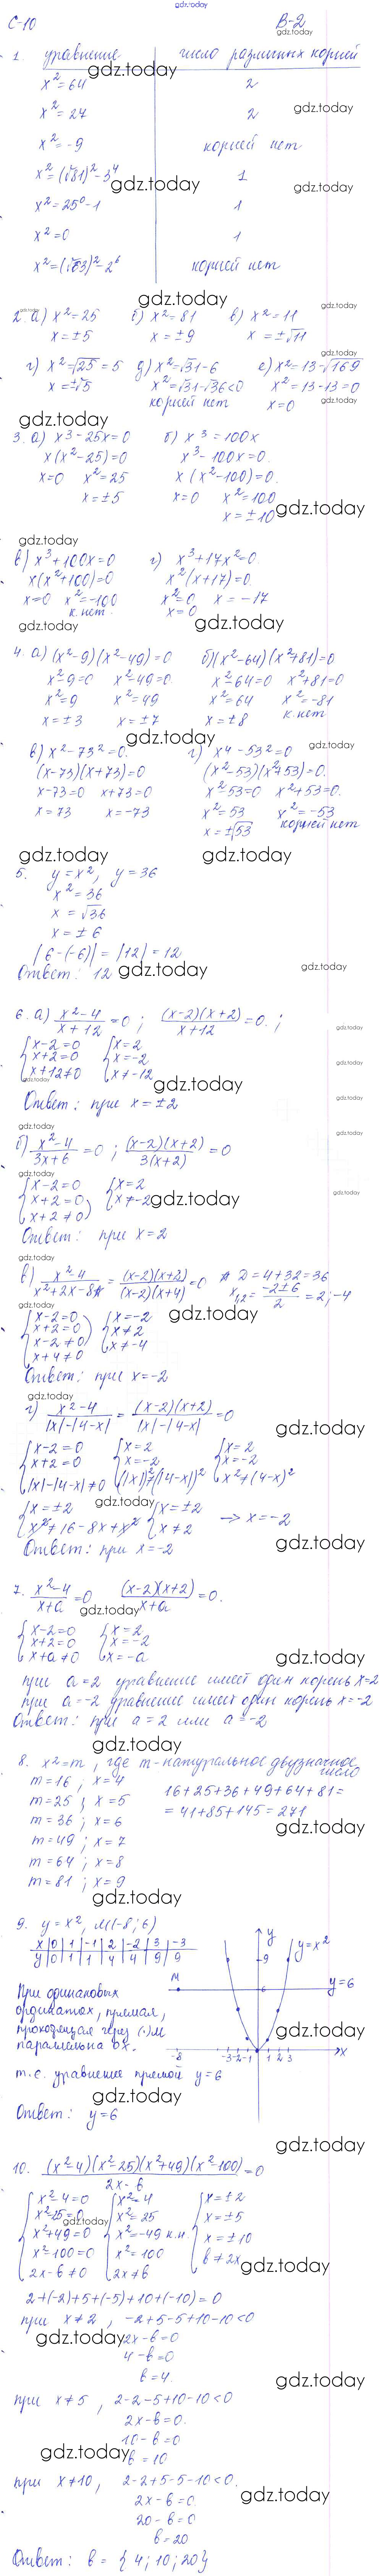 gdz.today
С-10 В-2
gdz.today
1. уравнение число различных корней
x²=64 2
gdz.today
x²=27 2
gdz.today
x²=-9 корней нет
x²=(√81)²-3⁴ 1
gdz.today gdz.today
x²=25⁰-1 1
x²=0 1
x²=(√63)²-2⁶ корней нет
gdz.today
2. а) x²=25 б) x²=81 в) x²=11
gdz.today gdz.today
x=±5 x=±9 x=±√11
gdz.today
г) x²=√25=5 д) x²=√31-6 е) x²=13-√169
gdz.today
x=±√5 x²=√31-√36<0 x²=13-13=0
корней нет x=0
gdz.today
gdz.today
3. а) x³-25x=0 б) x³=100x
x(x²-25)=0 x³-100x=0.
x=0 x²=25 x(x²-100)=0.
x=±5 x=0 x²=100
gdz.today
x=±10
gdz.today
в) x³+100x=0 г) x³+17x²=0.
x(x²+100)=0 x²(x+17)=0
x=0 x²=-100 x²=0 x=-17
к.нет. x=0
gdz.today gdz.today
4. а) (x²-9)(x²-49)=0 б) (x²-64)(x²+81)=0
x²-9=0 x²-49=0 x²-64=0 x²+81=0
x²=9 x²=49 x²=64 x²=-81
x=±3 x=±7 x=±8 к.нет
gdz.today
в) x²-73²=0. г) x⁴-53²=0
gdz.today
(x-73)(x+73)=0 (x²-53)(x²+53)=0.
x-73=0 x+73=0 x²-53=0 x²+53=0.
x=73 x=-73 x²=53 x²=-53
x=±√53 корней нет
gdz.today gdz.today
5. y=x², y=36
x²=36
x=√36
x=±6
|6-(-6)|=|12|=12
Ответ: 12
gdz.today gdz.today
6. а) x²-4/x+12=0; (x-2)(x+2)/x+12=0.;
gdz.today
{x-2=0 {x=2
x+2=0 x=-2
x+12≠0 x≠-12
gdz.today
gdz.today
gdz.today
gdz.today
Ответ: при x=±2
gdz.today
gdz.today
б) x²-4/3x+6=0; (x-2)(x+2)/3(x+2)=0
gdz.today
{x-2=0 {x=2
x+2=0 x≠-2
x+2≠0
gdz.today
gdz.today
Ответ: при x=2
gdz.today
в) x²-4/x²+2x-8=(x-2)(x+2)/(x-2)(x+4)=0 D=4+32=36
x₁,₂=-2±6/2=2;-4
gdz.today
gdz.today
{x-2=0 {x=-2
x+2=0 x≠2
x-2≠0 x≠-4
x+4≠0
Ответ: при x=-2
gdz.today
г) x²-4/|x|-|4-x|=(x-2)(x+2)/|x|-|4-x|=0
gdz.today
{x-2=0 {x=2 {x=2
x+2=0 x=-2 x=-2
|x|-|4-x|≠0 (|x|)²≠(|4-x|)² x²≠(4-x)²
gdz.today
{x=±2 {x=±2 → x=-2
x²≠16-8x+x² x≠2
gdz.today
Ответ: при x=-2
7. x²-4/x+a=0 (x-2)(x+2)/x+a=0.
gdz.today
{x-2=0 {x=2
x+2=0 x=-2
x+a≠0 x=-a
gdz.today
при a=2 уравнение имеет один корень x=2
при a=-2 уравнение имеет один корень x=-2
Ответ: при a=2 или a=-2
gdz.today
8. x²=m, где m-натуральное двузначное число
m=16, x=4 16+25+36+49+64+81=
m=25; x=5 =41+85+145=271
m=36; x=6
gdz.today
m=49; x=7
m=64; x=8
m=81; x=9
gdz.today
9. y=x², M(-8;6)
x 0 1 -1 2 -2 3 -3
y 0 1 1 4 4 9 9
y
y=x²
9
M
6
y=6
-8 -3-2-1 1 2 3 x
При одинаковых
ординатах, прямая,
gdz.today
проходящая через (·)M
параллельна Ox.
т.е. уравнение прямой y=6
gdz.today
Ответ: y=6
gdz.today
10. (x²-4)(x²-25)(x²+49)(x²-100)/2x-b=0
{x²-4=0 {x²=4 {x=±2
x²-25=0 x²=25 x=±5
gdz.today
x²+49=0 x²=-49 к.н. x=±10
x²-100=0 x²=100 b≠2x
2x-b≠0 2x≠b
gdz.today
2+(-2)+5+(-5)+10+(-10)=0
при x≠2, -2+5-5+10-10<0
gdz.today
2x-b=0
4-b=0
b=4.
gdz.today
при x≠5, 2-2-5+10-10<0
2x-b=0.
10-b=0
gdz.today
b=10
при x≠10, 2-2+5-5-10<0.
gdz.today
2x-b=0
20-b=0
b=20
Ответ: b={4;10;20}